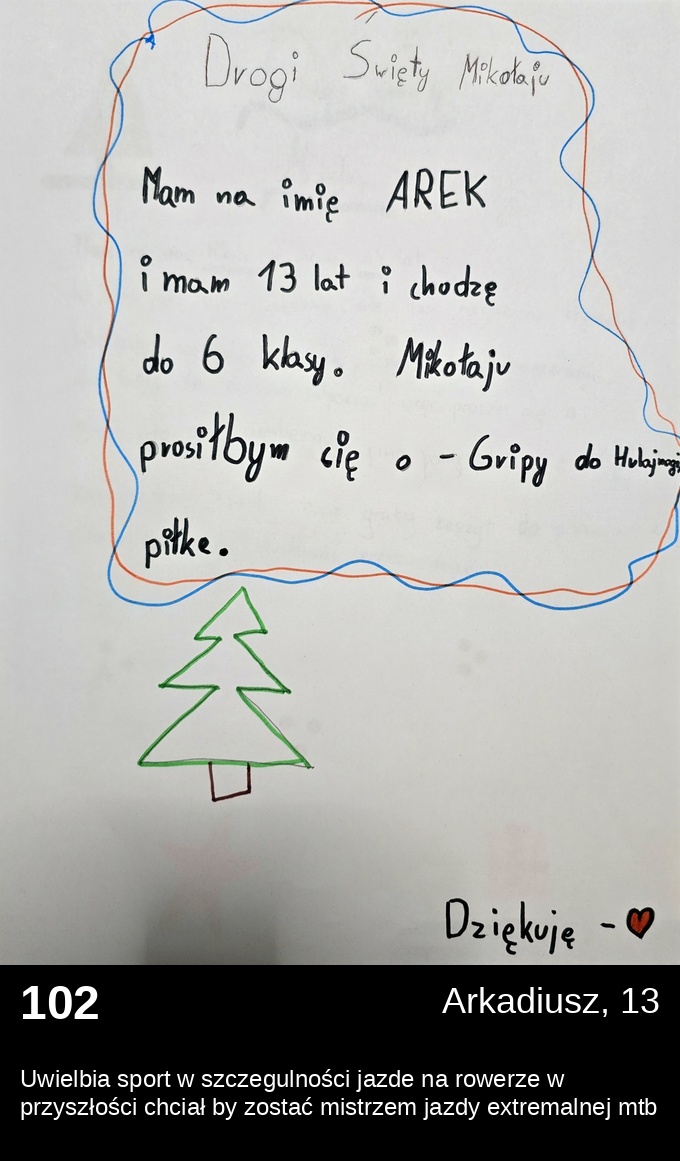 Drogi Święty Mikołaju
Mam na imię AREK
i mam 13 lat i chodzę
do 6 klasy. Mikołaju
prosiłbym cię o - Gripy do
piłke.
Dziękuję -
102
Arkadiusz, 13
Uwielbia sport w szczegulności jazde na rowerze w
przyszłości chciał by zostać mistrzem jazdy extremalnej mtb